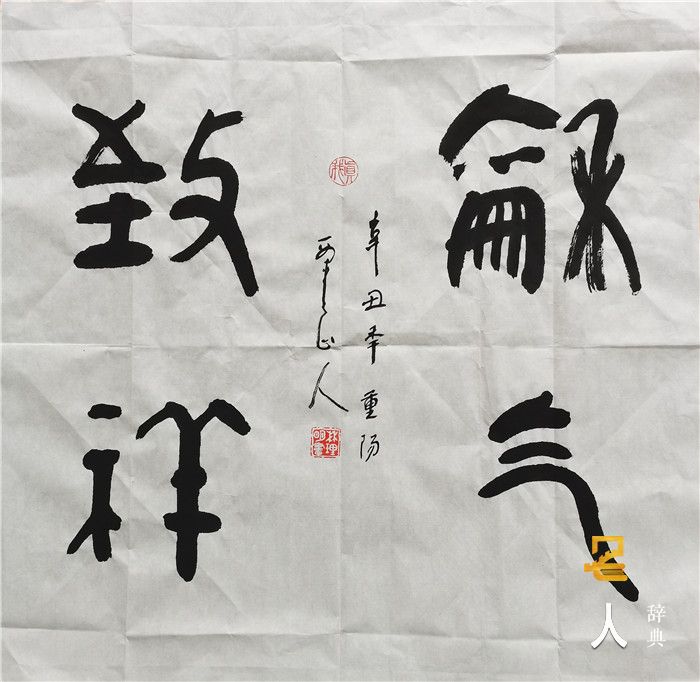 龢气
致祥
辛丑年重阳
山人
真我
名人
辞典